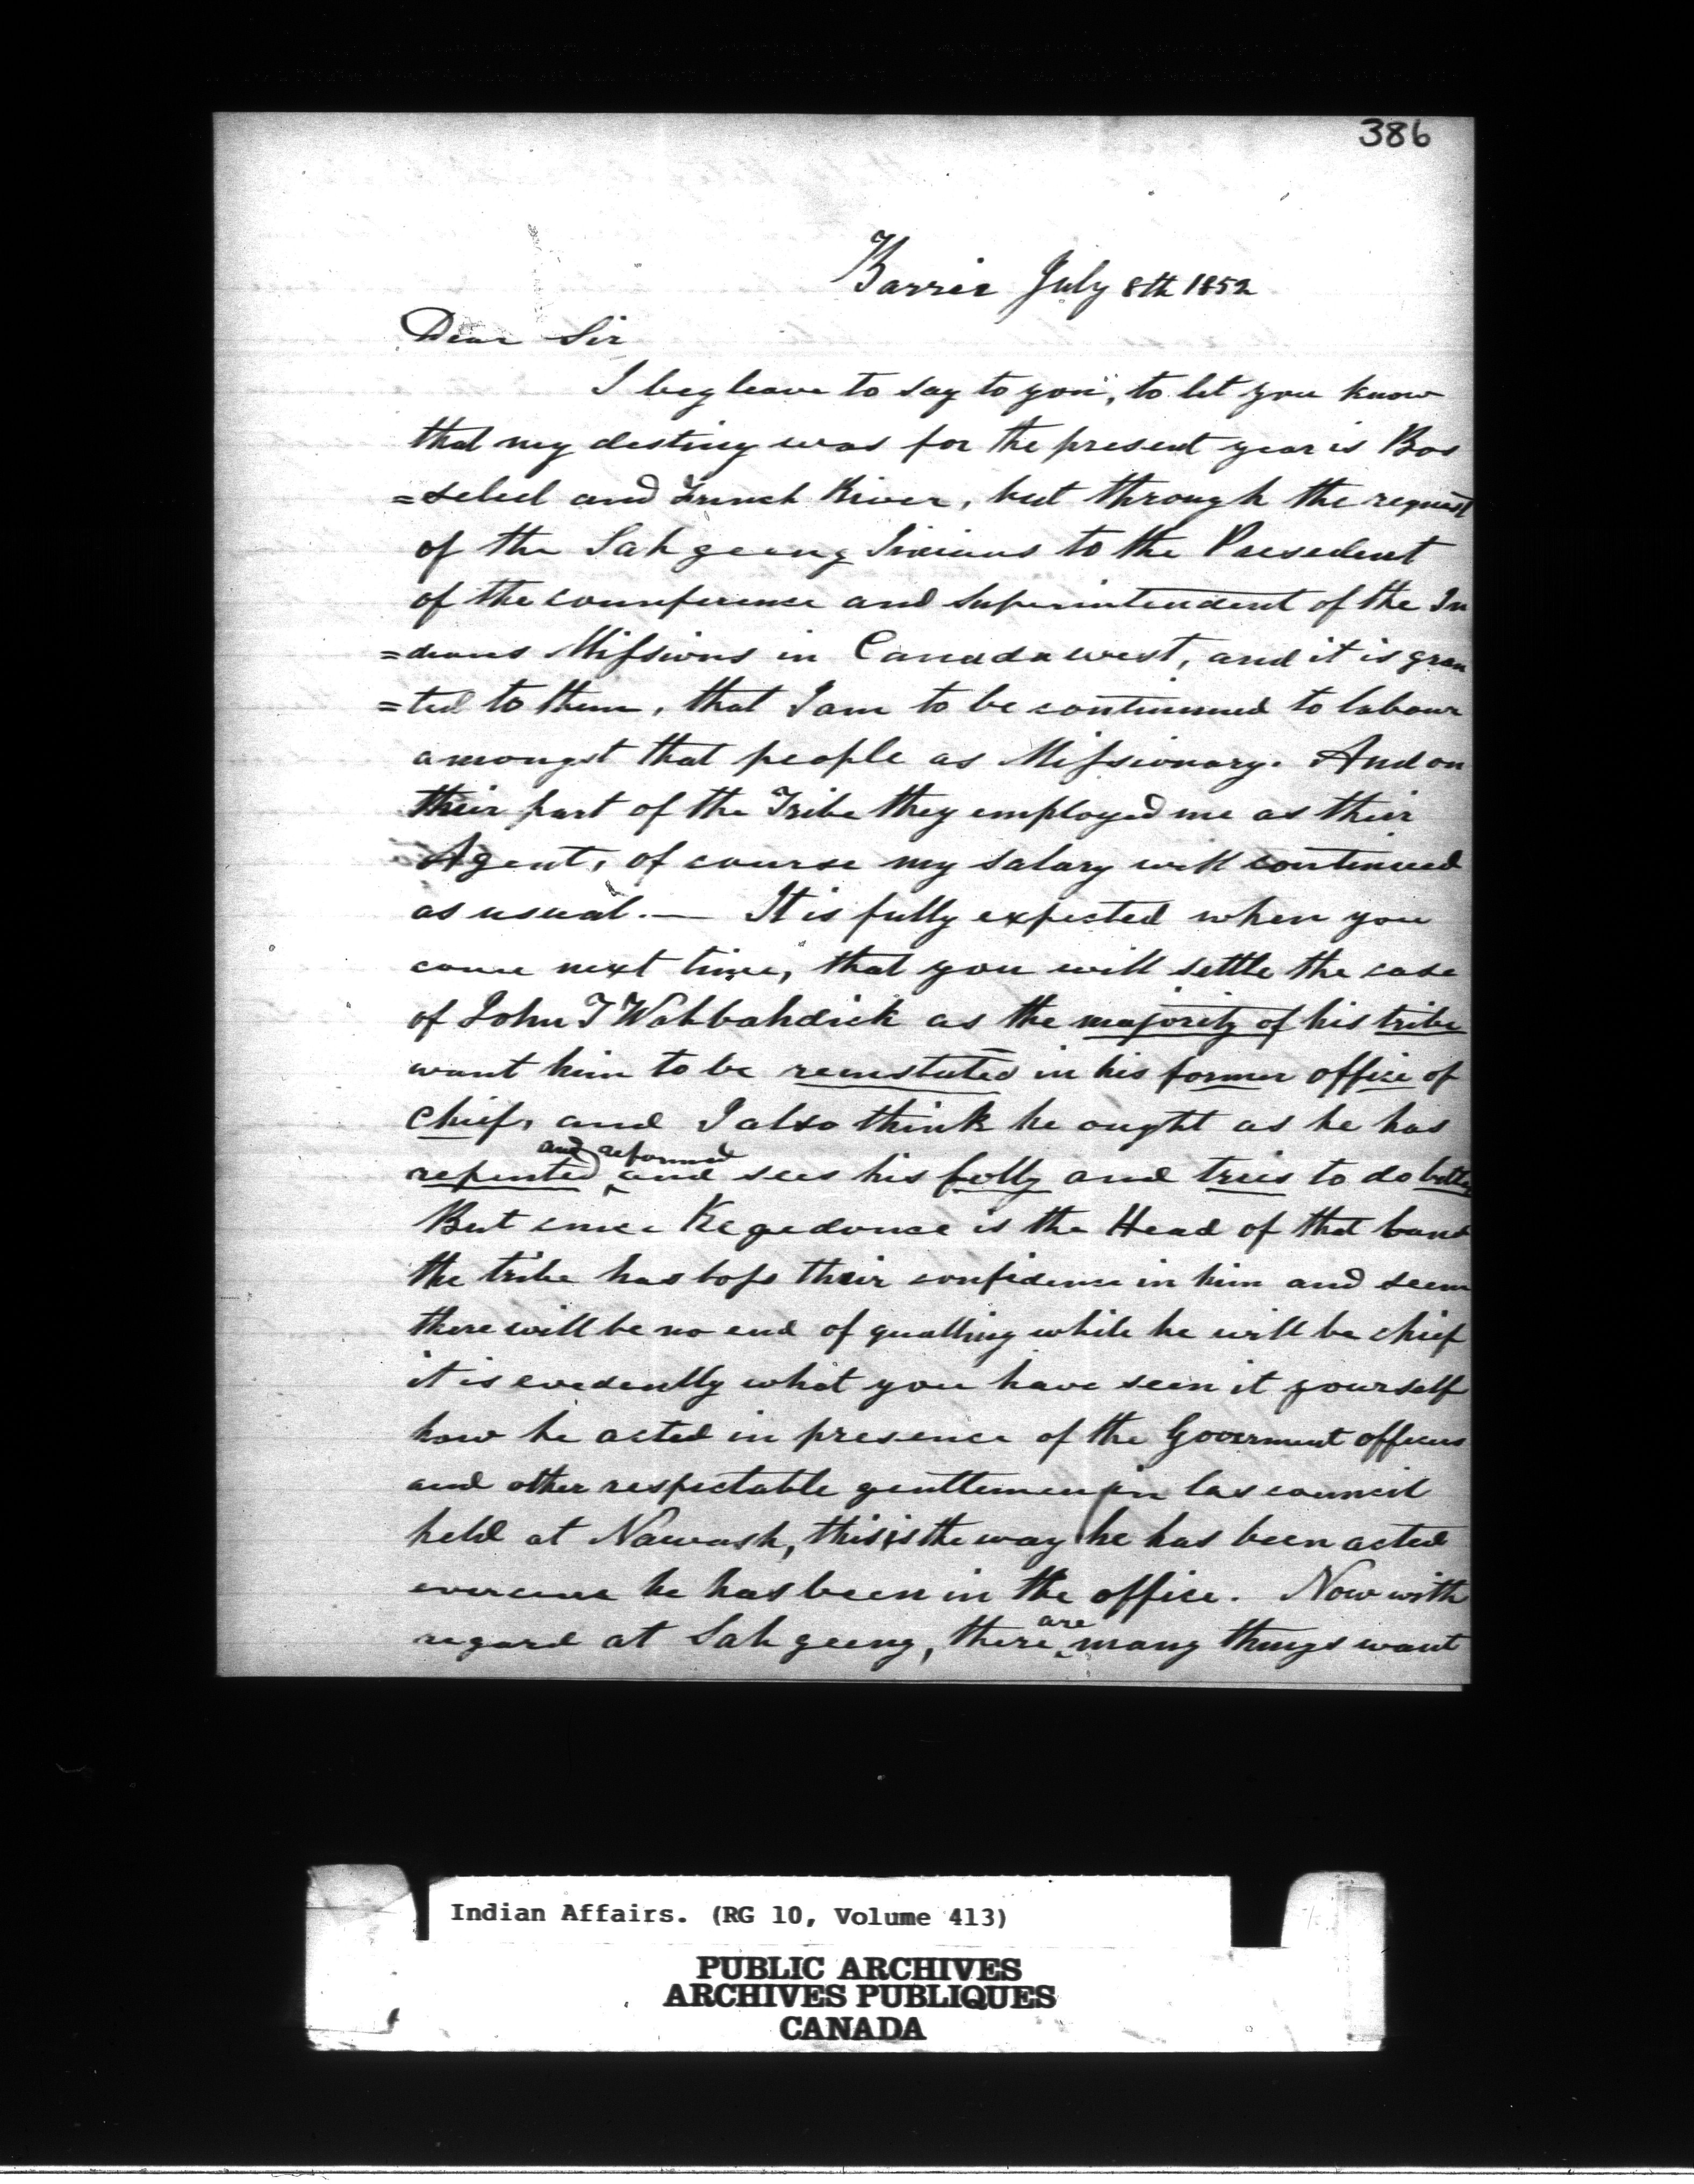 386
Barrie July 8th 1852
Dear Sir
I beg leave to say to you, to let you know
that my destiny was for the present year is Bos
=seleel and Frinch River, but through the request
of the Sahgeeng Inienns to the President
of the counference and Superintendent of the In
=deans Missions in Canada west, and it is gran
=ted to them, that I am to be continued to labour
amongst that people as Missionary. And on
their part of the Tribe they employed me as their
Agent, of course my salary will continued
as usual. — It is fully expected when you
come next time, that you will settle the case
of John T Wahbahdick as the majority of his tribe
want him to be reinstuted in his former office of
chief, and I also think he ought as he has
repented and reformed and sees his folly and tries to do better
But since Kegedonce is the Head of that band
the tribe has loss their confidence in him and seem
there will be no end of qualling while he will be chief
it is evedently what you have seen it yourself
how he acted in presence of the Goverment officers
and other respectable genttemen in las council
held at Nawash, this is the way he has been acted
evercence he has been in the office. Now with
regard at Sahgeeng, there are many things want
Indian Affairs. (RG 10, Volume 413)
PUBLIC ARCHIVES
ARCHIVES PUBLIQUES
CANADA